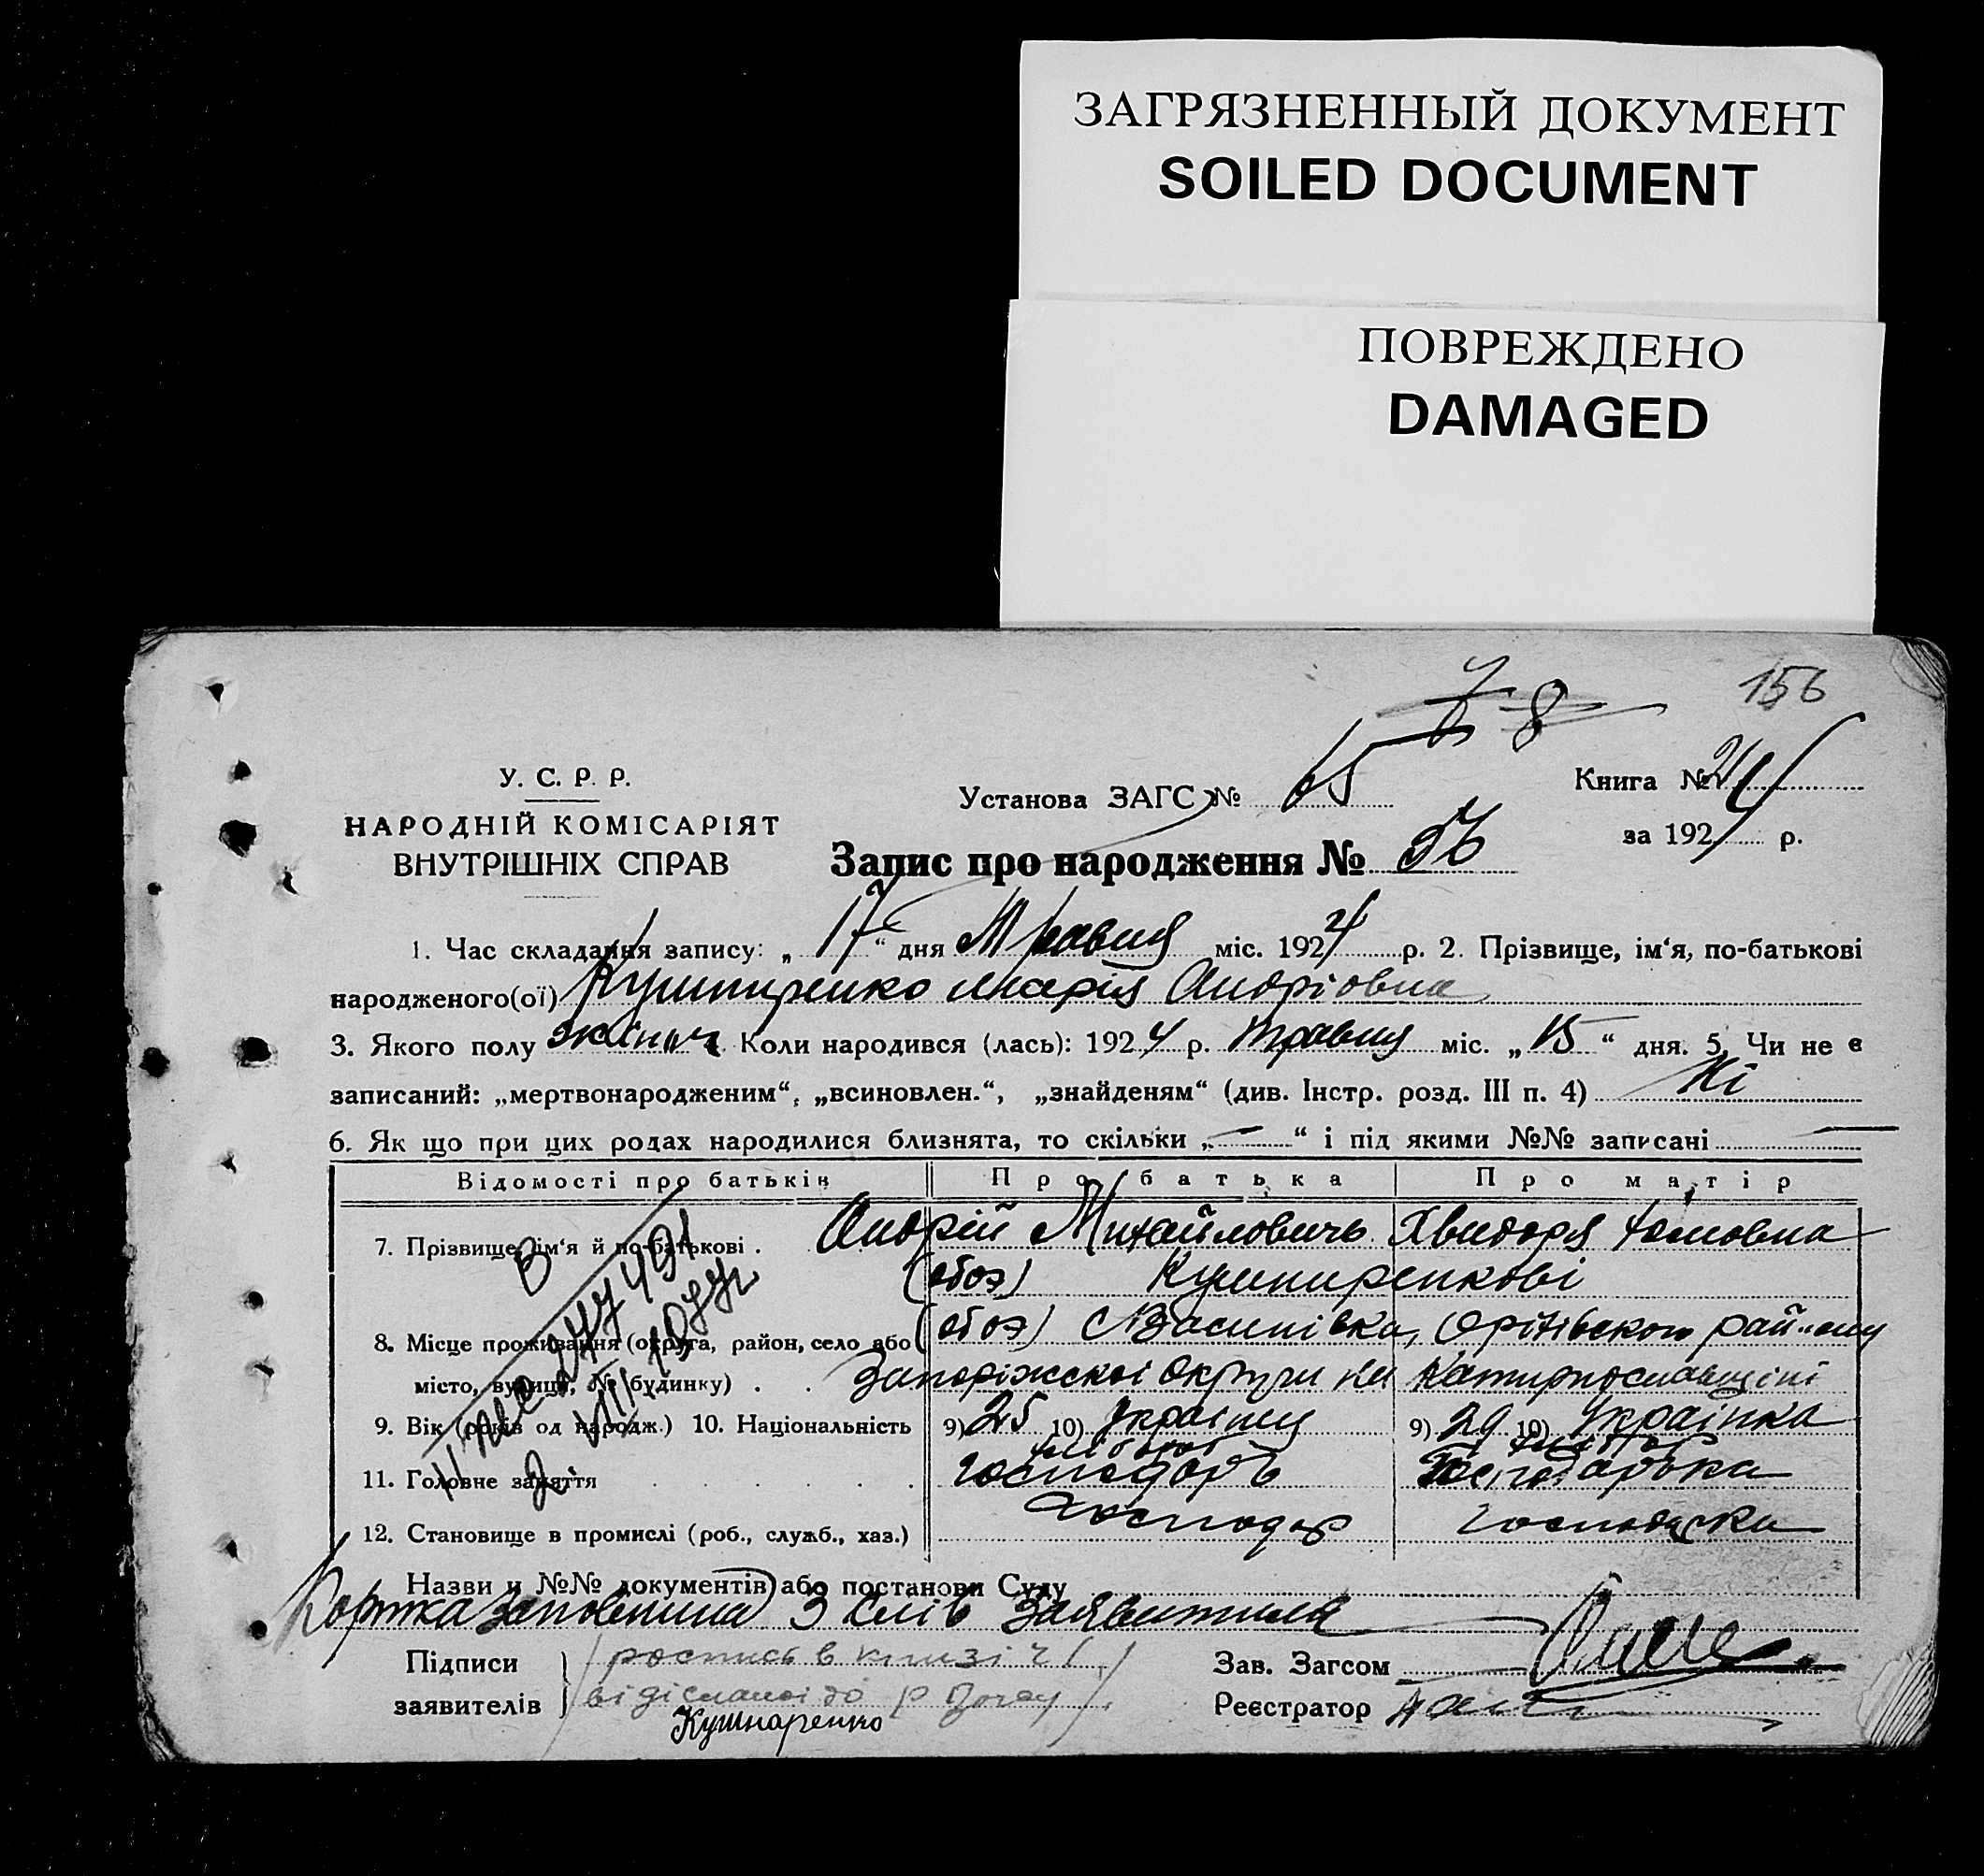 ЗАГРЯЗНЕННЫЙ ДОКУМЕНТ
SOILED DOCUMENT
ПОВРЕЖДЕНО
DAMAGED
156
8
У. С. Р. Р.
НАРОДНІЙ КОМІСАРІЯТ
ВНУТРІШНІХ СПРАВ
Установа ЗАГС № 65
Книга №
за 1924 р.
Запис про народження № 56
1. Час складання запису: „ 17 “ дня Травня міс. 1924 р. 2. Прізвище, ім‘я, по-батькові
народженого(ої) Кушниренко Марія Андріовна
3. Якого полу жіноч. Коли народився (лась): 1924 р. травня міс. „ 15 “ дня. 5. Чи не є
записаний: „мертвонародженим“, „всиновлен.“, „знайденям“ (див. Інстр. розд. III п. 4) Ні
6. Як що при цих родах народилися близнята, то скільки „ — “ і під якими №№ записані —
Відомості про батьків Про батька Про матір
7. Прізвище, ім‘я й по-батькові . Андрій Михайловичь Хвидоря Юмовна
(обоэ) Кушниренкові
8. Місце проживання (округа, район, село або (обоэ) Васинівка, Оріхівского району
місто, вулиця, № будинку) . . Запоріжскоі округи на Катиринославщині
9. Вік (років од народж.) 10. Національність 9) 25 10) Українец 9) 29 10) Українка
11. Головне заняття хлібороб господарь Господарька
12. Становище в промислі (роб., служб., хаз.) господар господарка
Назви и №№ документів або постанови Суду
Кортка заповнина З слів Заявителя
Підписи роспись в книзі ч 1
заявителів відісланоі до
Кушнаренко
Зав. Загсом
Реєстратор